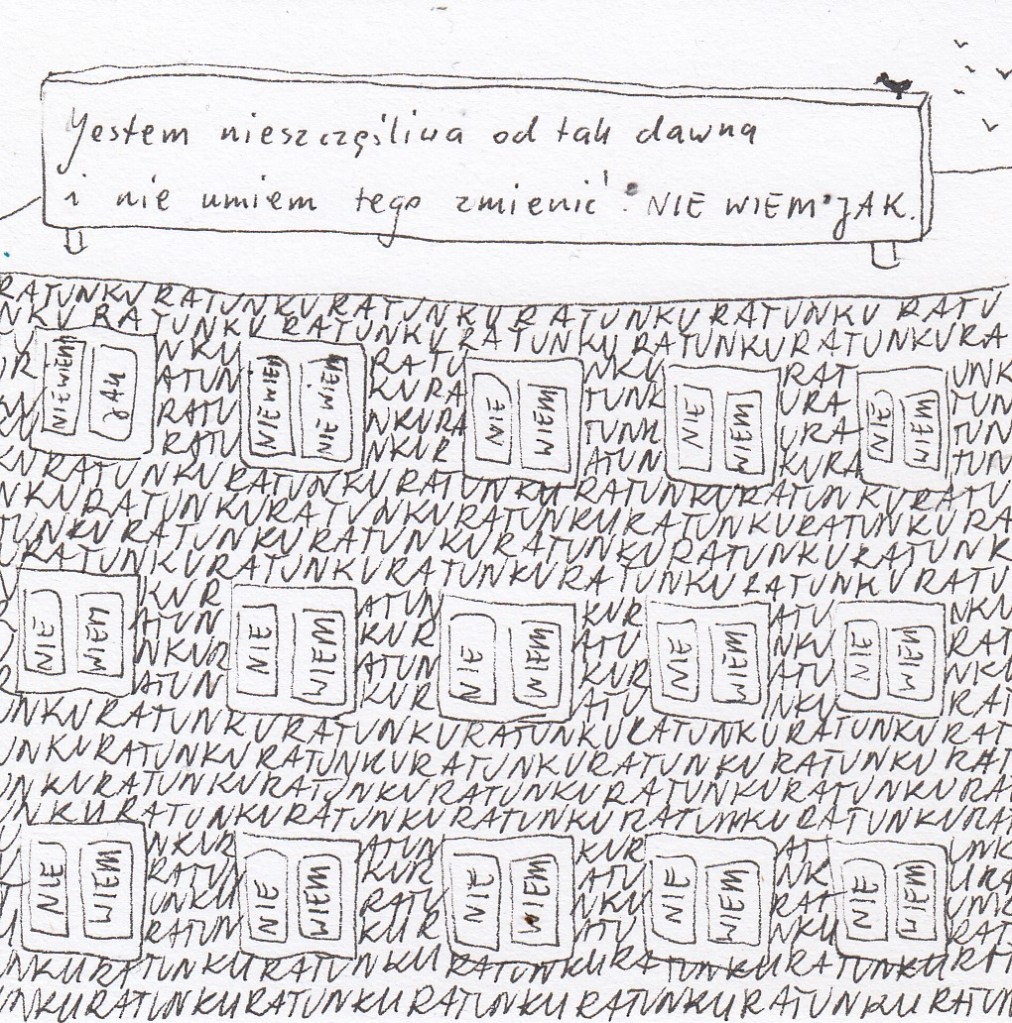 Jestem nieszczęśliwa od tak dawna
i nie umiem tego zmienić. NIE WIEM JAK.
RATUNKU RATUNKU RATUNKU RATUNKU RATUNKU RATU
NKU RATUNKU RATUNKU RATUNKU RATUNKURATUNKURA
NIE WIEM JAK
NIE WIEM NIE WIEM
NIE WIEM
NIE WIEM
NIE WIEM
UR ATUNKURATUNKURATUNKURATUNKURATUNKURATU
NKURATUNKURATUNKURATUNKURATUNKURATUNKURA
TUNKURATUNKURATUNKURATUNKURATUNKURATUNK
URATUNKURATUNKURATUNKURATUNKURATUNKURATU
NIE WIEM
NIE WIEM
NIE WIEM
NIE WIEM
NIE WIEM
UNKURATUNKURATUNKURATUNKURATUNKURATUNKURAT
UNKURATUNKURATUNKURATUNKURATUNKURATUNKURAT
UNKURATUNKURATUNKURATUNKURATUNKURATUNKURAT
UNKURATUNKURATUNKURATUNKURATUNKURATUNKURAT
NIE WIEM
NIE WIEM
NIE WIEM
NIE WIEM
NIE WIEM
UNKURATUNKURATUNKURATUNKURATUNKURATUNKURAT
UNKURATUNKURATUNKURATUNKURATUNKURATUNKURATUN